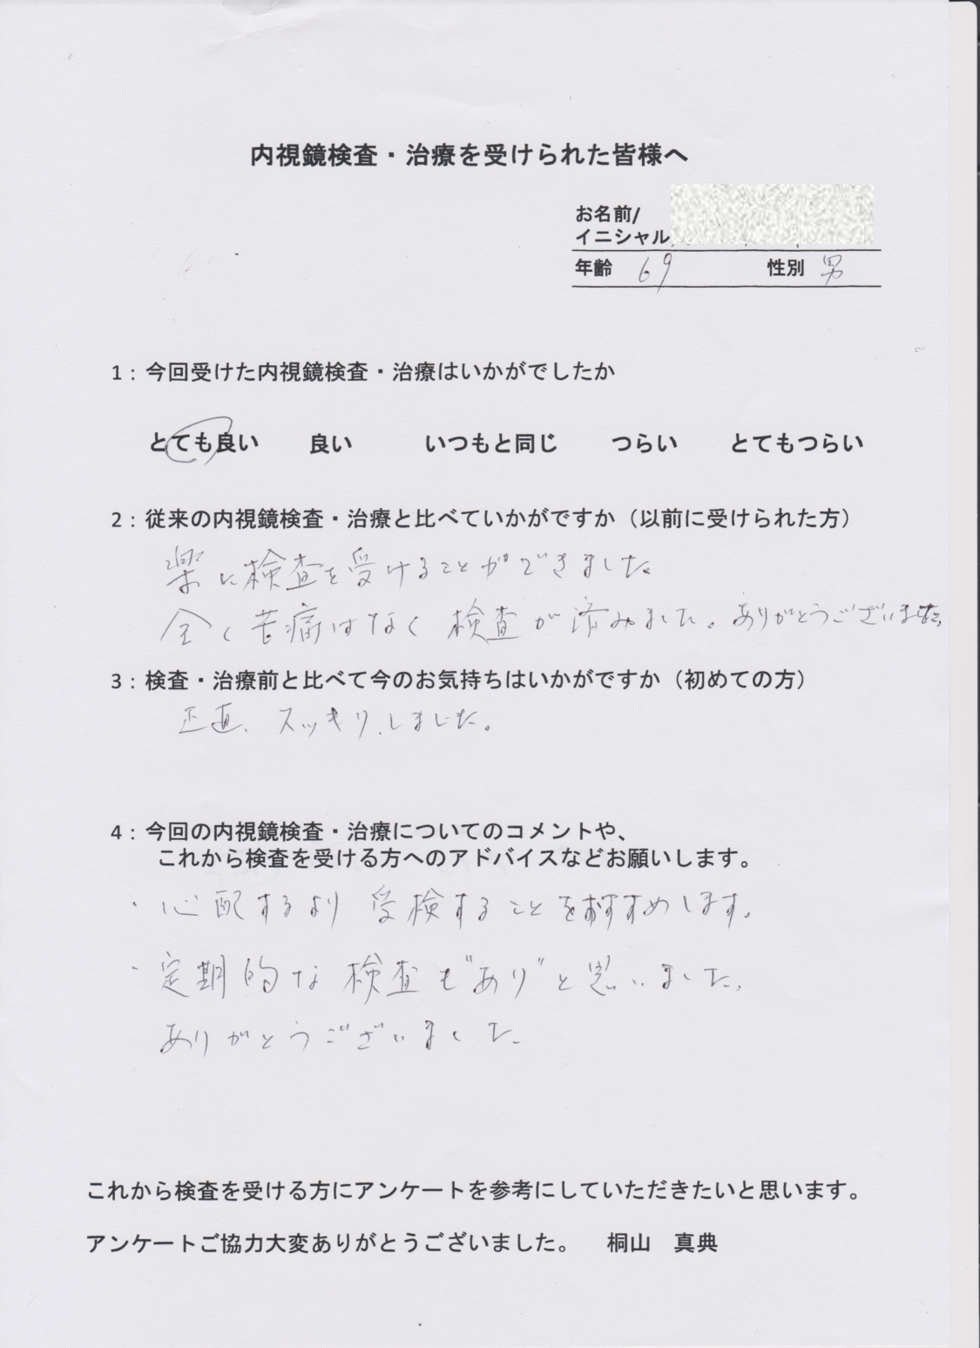 内視鏡検査・治療を受けられた皆様へ
お名前/
イニシャル
年齢 69 性別 男
1：今回受けた内視鏡検査・治療はいかがでしたか
とても良い 良い いつもと同じ つらい とてもつらい
2：従来の内視鏡検査・治療と比べていかがですか（以前に受けられた方）
楽に検査を受けることができました。
全く苦痛はなく検査が済みました。ありがとうございました。
3：検査・治療前と比べて今のお気持ちはいかがですか（初めての方）
正直、スッキリしました。
4：今回の内視鏡検査・治療についてのコメントや、
これから検査を受ける方へのアドバイスなどお願いします。
・心配するより受検することをおすすめします。
・定期的な検査も"あり"と思いました。
ありがとうございました。
これから検査を受ける方にアンケートを参考にしていただきたいと思います。
アンケートご協力大変ありがとうございました。 桐山 真典